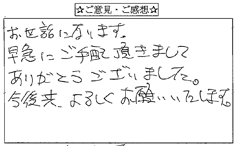 ☆ご意見・ご感想☆
お世話になります。
早急にご手配頂きまして
ありがとうございました。
今後共、よろしくお願いいたします。